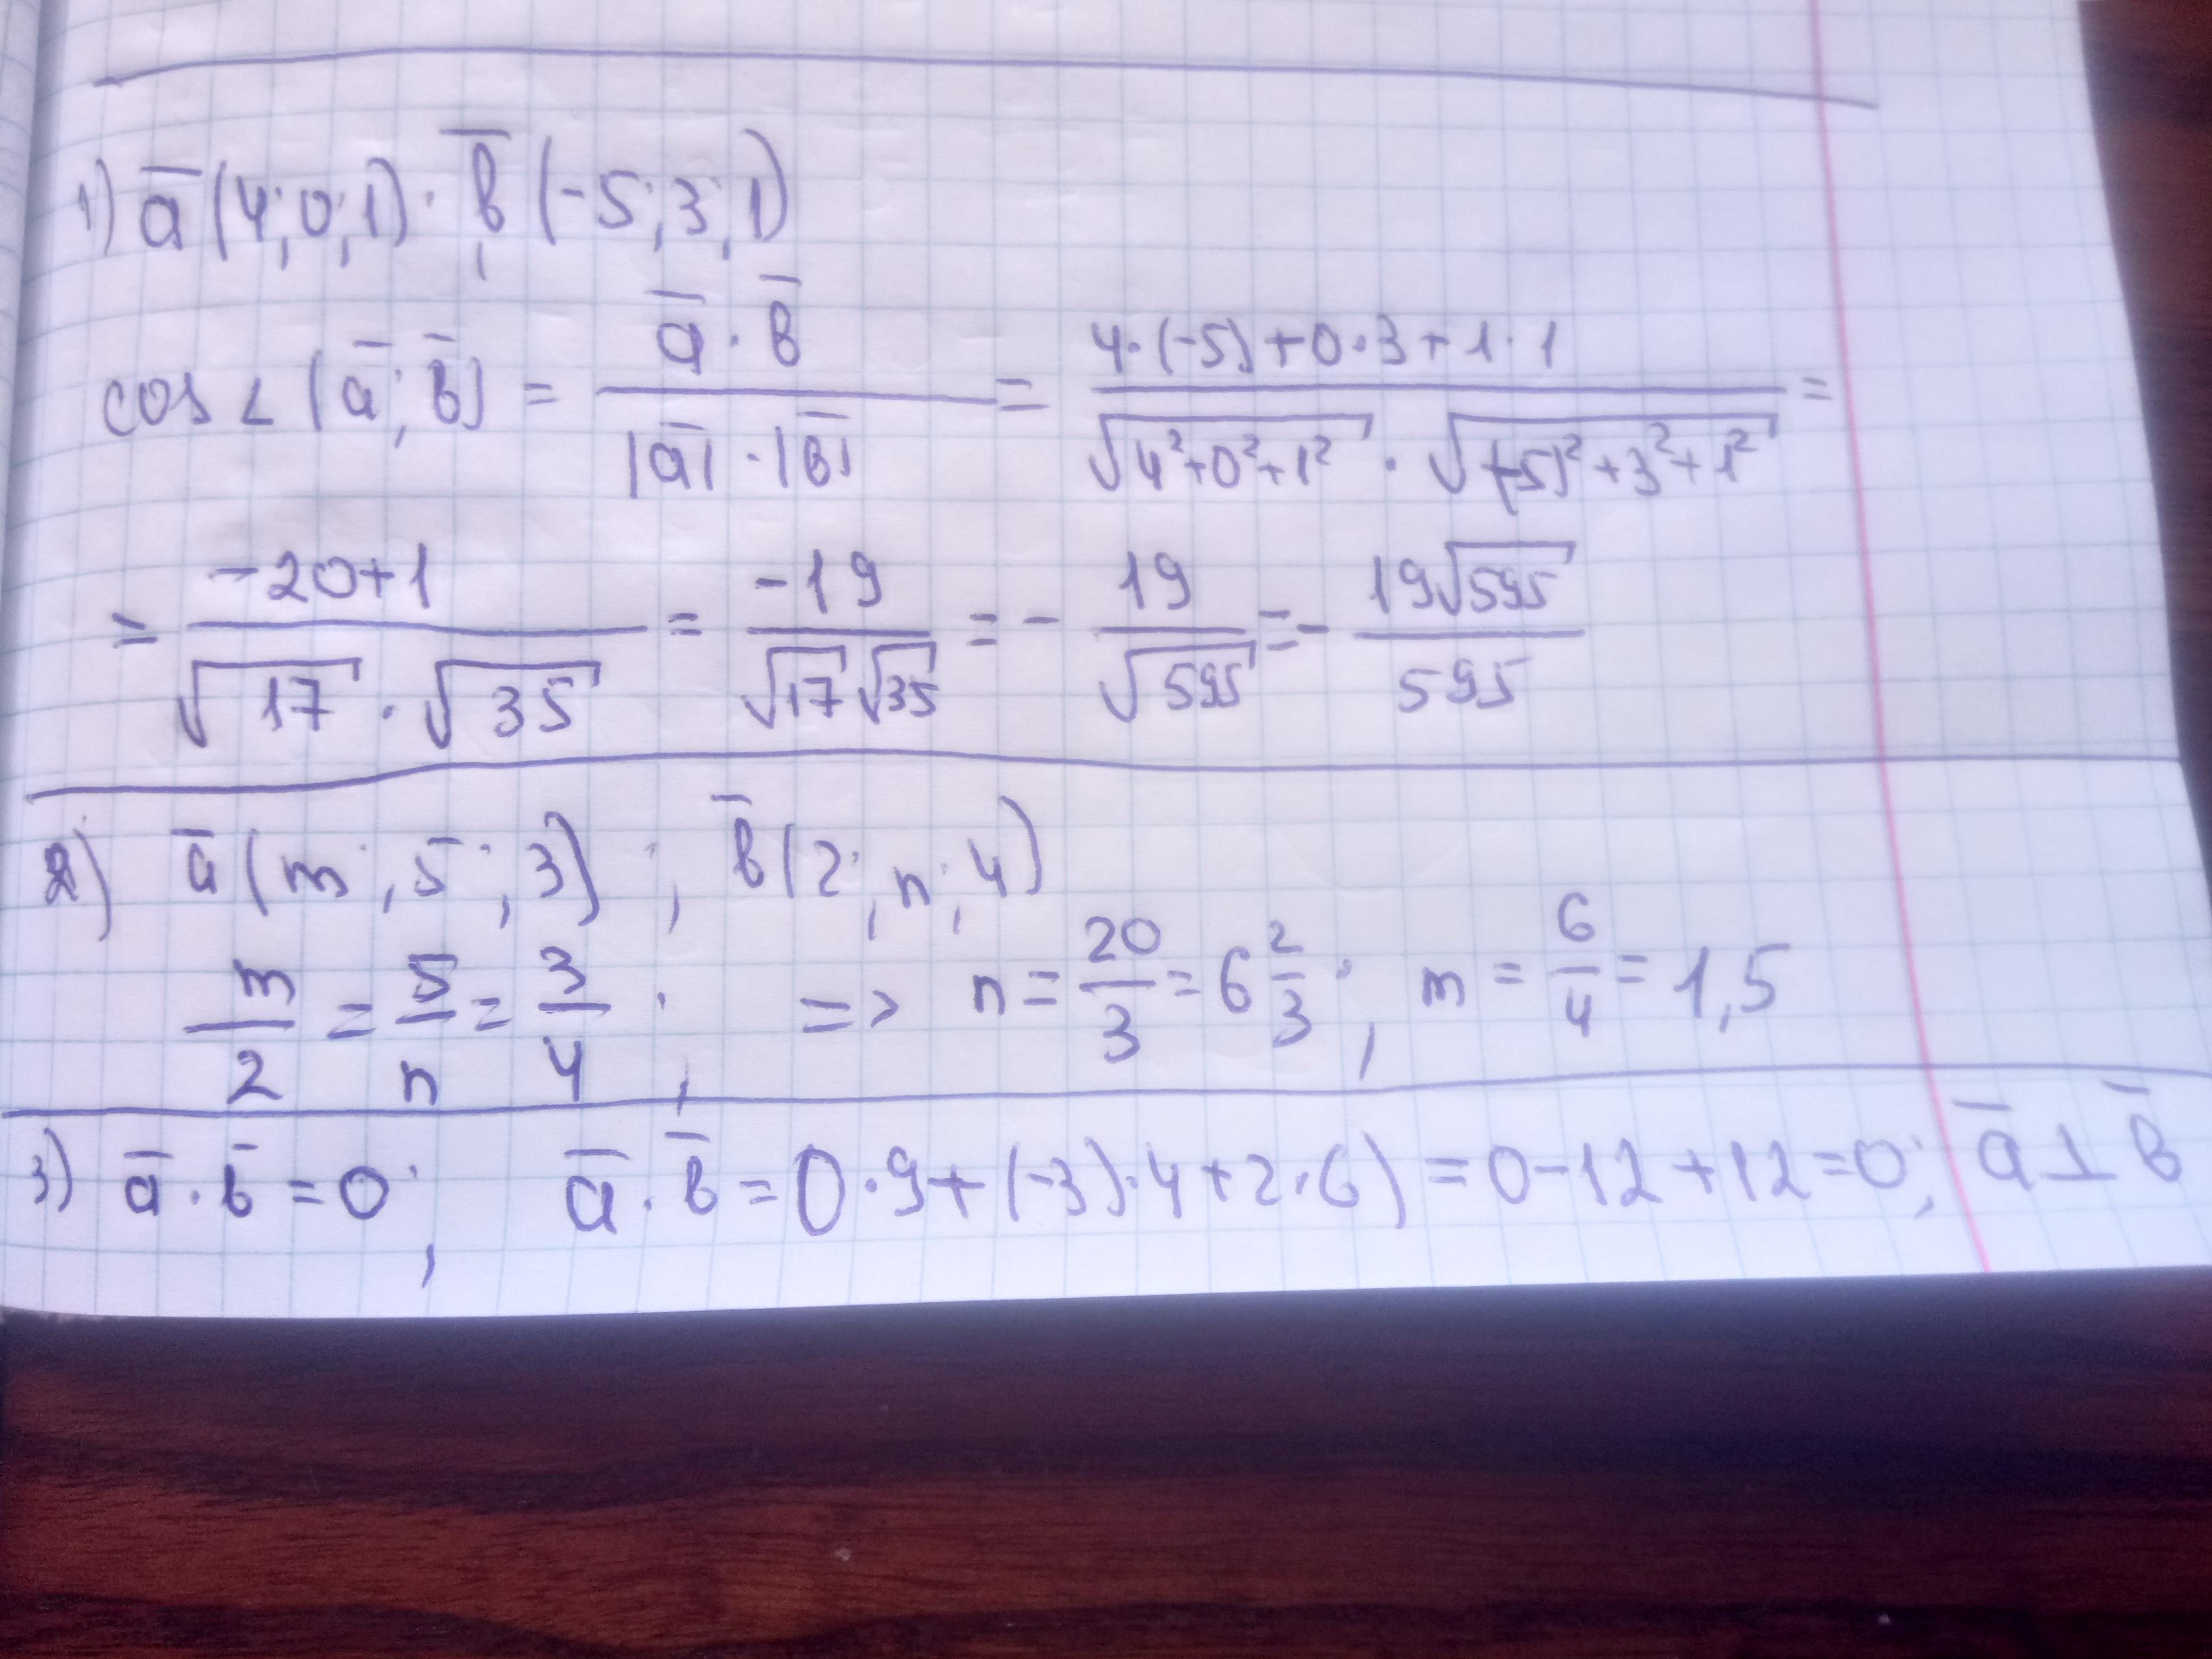 1) a̅ (4; 0; 1); b̅ (-5; 3; 1)
cos ∠ (a̅; b̅) = (a̅ · b̅)/(|a̅| · |b̅|) = (4·(-5)+0·3+1·1)/(√(4²+0²+1²) · √((-5)²+3²+1²)) =
= (-20+1)/(√17 · √35) = (-19)/(√17 √35) = - 19/√595 = - 19√595/595
2) a̅ (m; 5; 3); b̅ (2; n; 4)
m/2 = 5/n = 3/4; => n = 20/3 = 6 2/3; m = 6/4 = 1,5
3) a̅ · b̅ = 0; a̅ · b̅ = 0·9+(-3)·4+2·6) = 0-12+12=0; a̅ ⊥ b̅